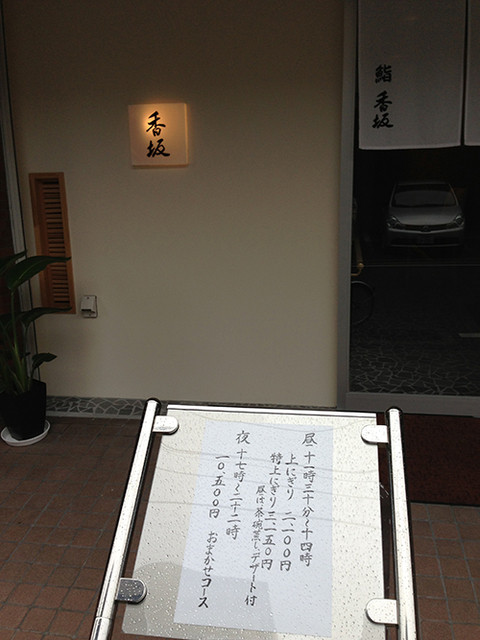 鮨 香坂
香坂
昼 十一時三十分〜十四時
上にぎり 二、一〇〇円
特上にぎり 三、一五〇円
昼は、茶碗蒸し、デザート付
夜 十七時〜二十二時
一〇、五〇〇円 おまかせコース